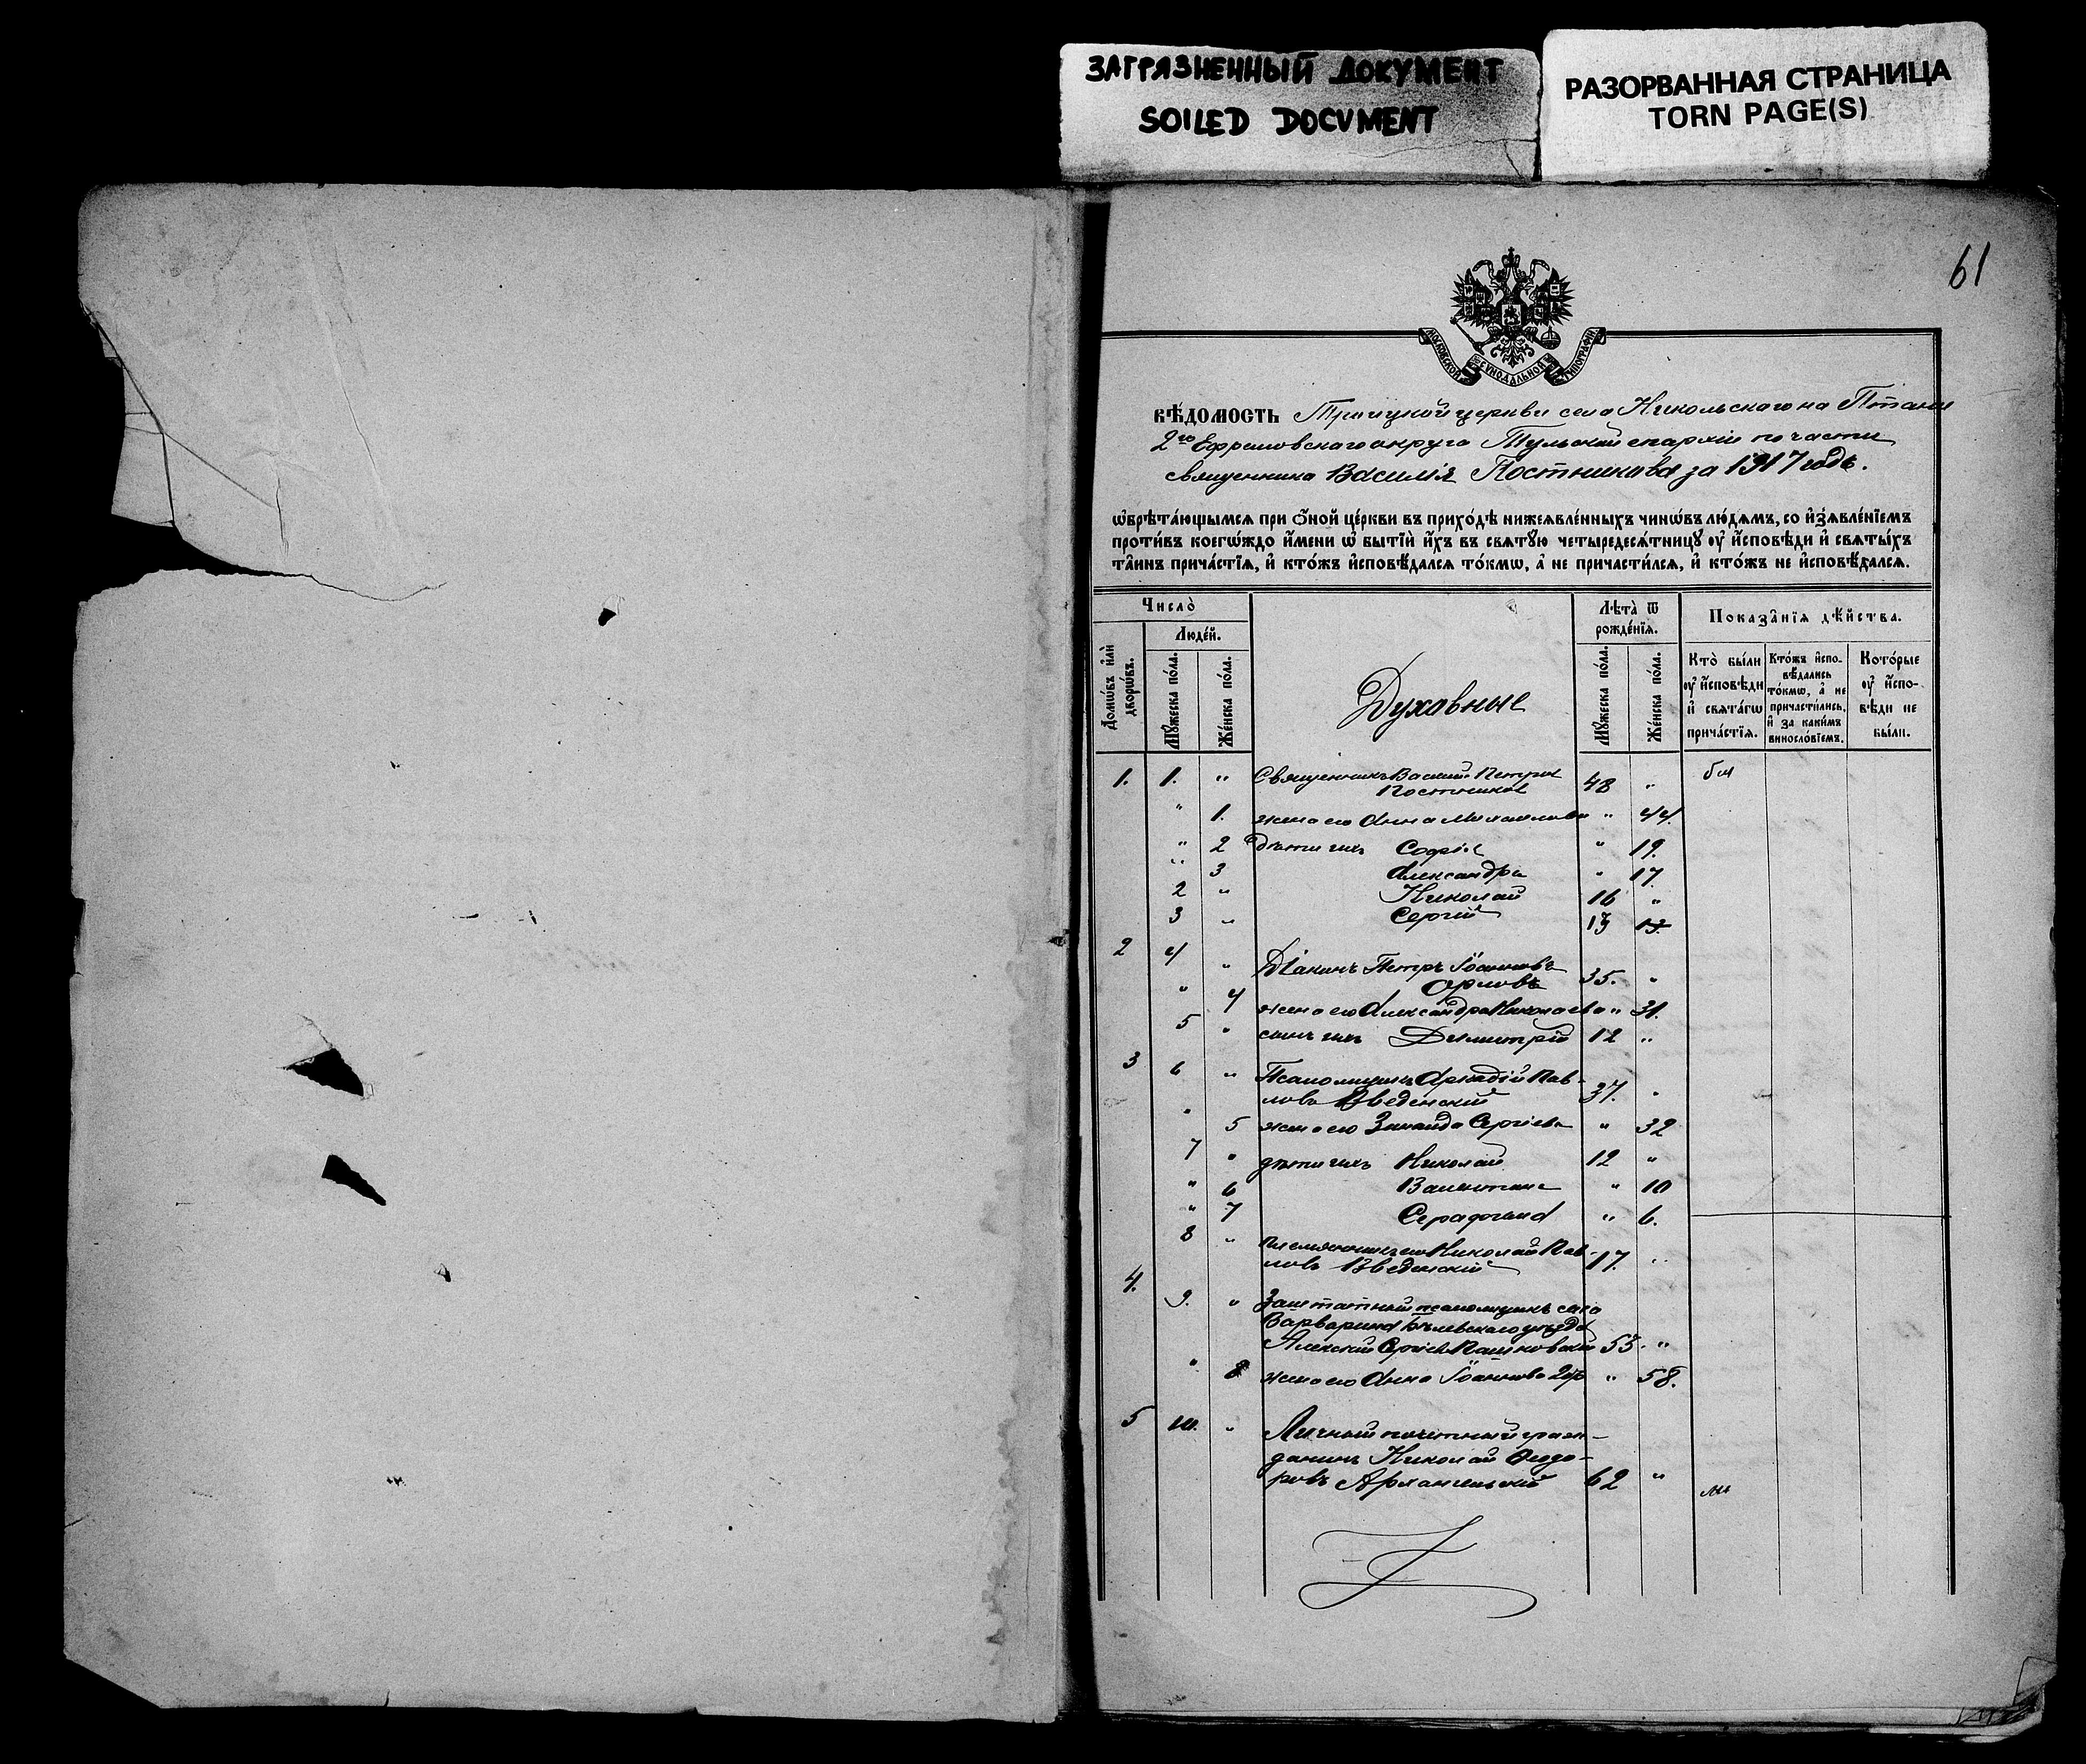 ЗАГРЯЗНЕННЫЙ ДОКУМЕНТ
SOILED DOCUMENT
РАЗОРВАННАЯ СТРАНИЦА
TORN PAGE(S)
61
МОСКОВСКОЙ СѴНОДАЛЬНОЙ ТИПОГРАФІИ
вѣ́домость Троицкой церкви села Никольскаго на Птани
2го Ефремовскаго округа Тульской епархіи по части
священника Василія Постникова за 1917 годъ.
ѡбрѣта́ющымсѧ при Ѻ҆ной це́ркви въ прихо́дѣ нижеѧвле́нныхъ чинѡ́въ лю́дѧмъ, со и҆зѧвле́нїемъ
проти́въ коегѡ́ждо и҆́мени ѡ҆ бытїѝ и҆́хъ въ свѧтꙋ́ю четыредесѧ́тницꙋ ᲂу҆ и҆́сповѣди и҆ свѧты́хъ
та̑инъ прича́стїѧ, и҆ кто́жъ и҆сповѣ́далсѧ то́кмѡ, а҆ не причасти́лсѧ, и҆ кто́жъ не и҆сповѣ́далсѧ.
Число̀
Домѡ́въ и҆лѝ дворѡ́въ.
Люде́й.
Мꙋ́жеска по́ла.
Же́нска по́ла.
Духовные
Лѣта̀ ѿ
рожде́нїѧ.
Мꙋ́жеска по́ла.
Же́нска по́ла.
Показа̑нїѧ дѣ́йства.
Кто̀ бы́ли
ᲂу҆ и҆́сповѣди
и҆ свѧта́гѡ
прича́стїѧ.
Кто́жъ и҆спо-
вѣ́дались
то́кмѡ, а҆ не
причасти́лись,
и҆ за каки́мъ
виносло́вїемъ.
Кото́рые
ᲂу҆ и҆́спо-
вѣди не
бы́ли.
1. 1. " Священникъ Василій Петров
Постников 48 " бы
" 1. жена его Анна Михаилова " 44.
" 2 дѣти ихъ Софія " 19.
" 3 Александра " 17.
2 " Николай 16 "
3 " Сергій 13 13.
2 4 " Діаконъ Петръ Іоанновъ
Орловъ 35. "
" 4 жена его Александра Николаева " 31.
5 " сынъ ихъ Димитрій 12 "
3 6 " Псаломщикъ Аркадій Пав-
ловъ Введенскій 37. "
" 5 жена его Зинаида Сергіева " 32
7 " дѣти ихъ Николай 12 "
" 6 Валентина " 10
" 7 Серафима " 6.
8 " племянникъ его Николай Пав-
ловъ Введенскій 17. "
4. 9. " Заштатный псаломщикъ села
Варварина Бѣлевскаго уѣзда
Алексій Сергіев 53. "
" 8 жена его Анна Іоаннова " 58.
5 10. " Личный почетный граж-
данинъ Николай Ѳеодо-
ровъ Архангельскій 62 " ли